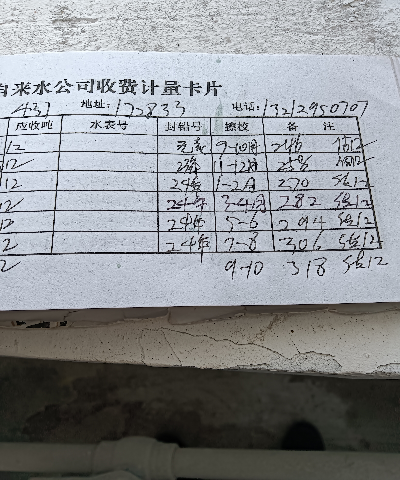 自来水公司收费计量卡片
437 地址: 172833 电话: 13212950707
应收吨 水表号 封铅号 擦校 备注
12 9-10月 246 估12
12 11-12月 258 估12
12 24年 1-2月 270 估12
12 24年 3-4月 282 估12
12 24年 5-6 294 估12
12 24年 7-8 306 估12
12 9-10 318 估12